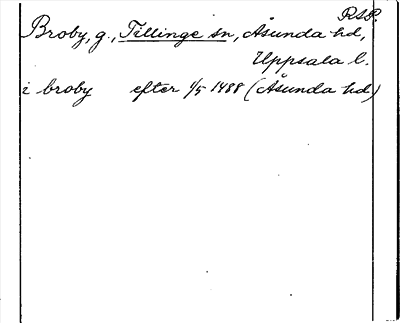 RSP.
Broby, g., Tillinge sn, Åsunda hd,
Uppsala l.
i broby efter 1/5 1488 (Åsunda hd)